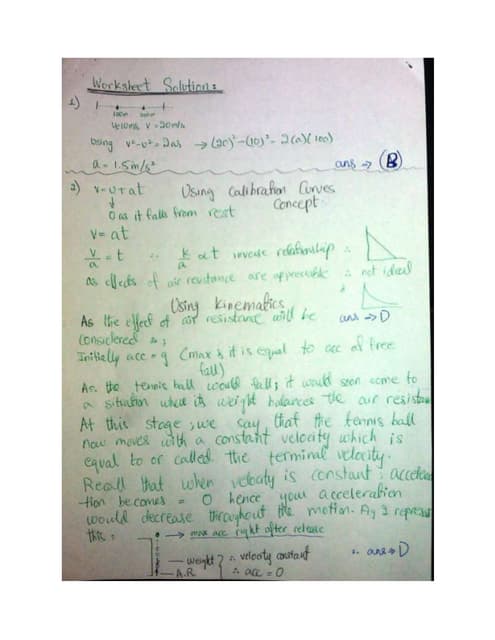 Worksheet Solution:
1)
u=10m/s v=20m/s
Using v²-u²=2as → (20)²-(10)²=2(a)(100)
a=1.5m/s² ans → (B)
2) v=u+at Using Calibration Curves
Concept
0 as it falls from rest
v=at
v/a = t ∴ k/a ∝ t inverse relationship ∴
as effects of air resistance are appreciable ∴ not ideal
Using kinematics
As the effect of air resistance will be ans → D
considered
Initially acc = g (max & it is equal to acc of free
fall)
As the tennis ball would fall; it would soon come to
a situation where its weight balances the air
At this stage; we say that the tennis ball
now moves with a constant velocity which is
equal to or called the terminal velocity.
Recall that when velocity is constant;
tion becomes = 0 hence your acceleration
would decrease throughout the motion.
this:
→ max acc right after release
weight ∴ velocity constant ∴ ans → D
A.R ∴ acc = 0